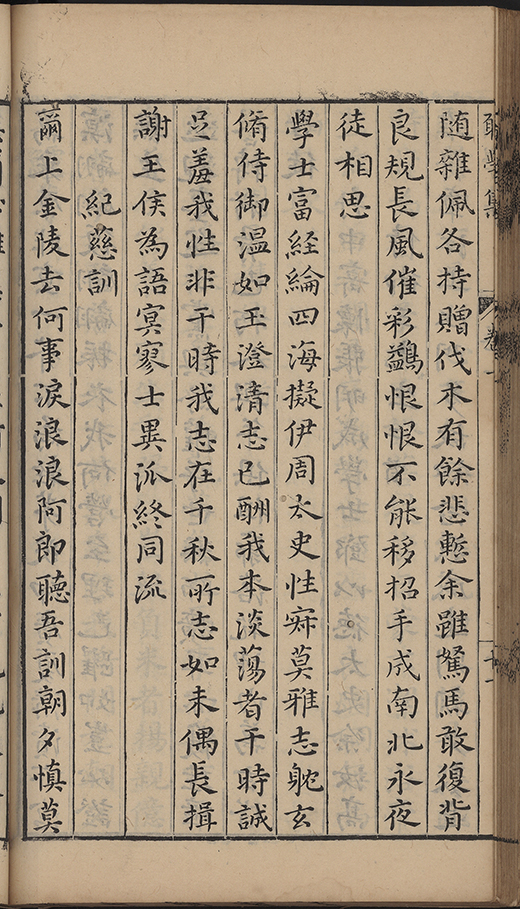 随雜佩各持贈伐木有餘悲慙余雖駑馬敢復背
良規長風催彩鷁恨恨不能移招手成南北永夜
徒相思
學士富經綸四海擬伊周太史性寂莫雅志躭玄
脩侍御溫如玉澄清志已酬我本淡蕩者干時誠
足羞我性非干時我志在千秋所志如未偶長揖
謝王侯為語寥士異派終同流
紀慈訓
爾上金陵去何事淚浪浪阿郎聽吾訓朝夕慎莫